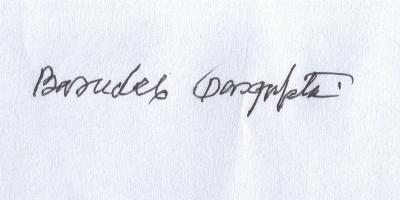 Basudeb Dasgupta